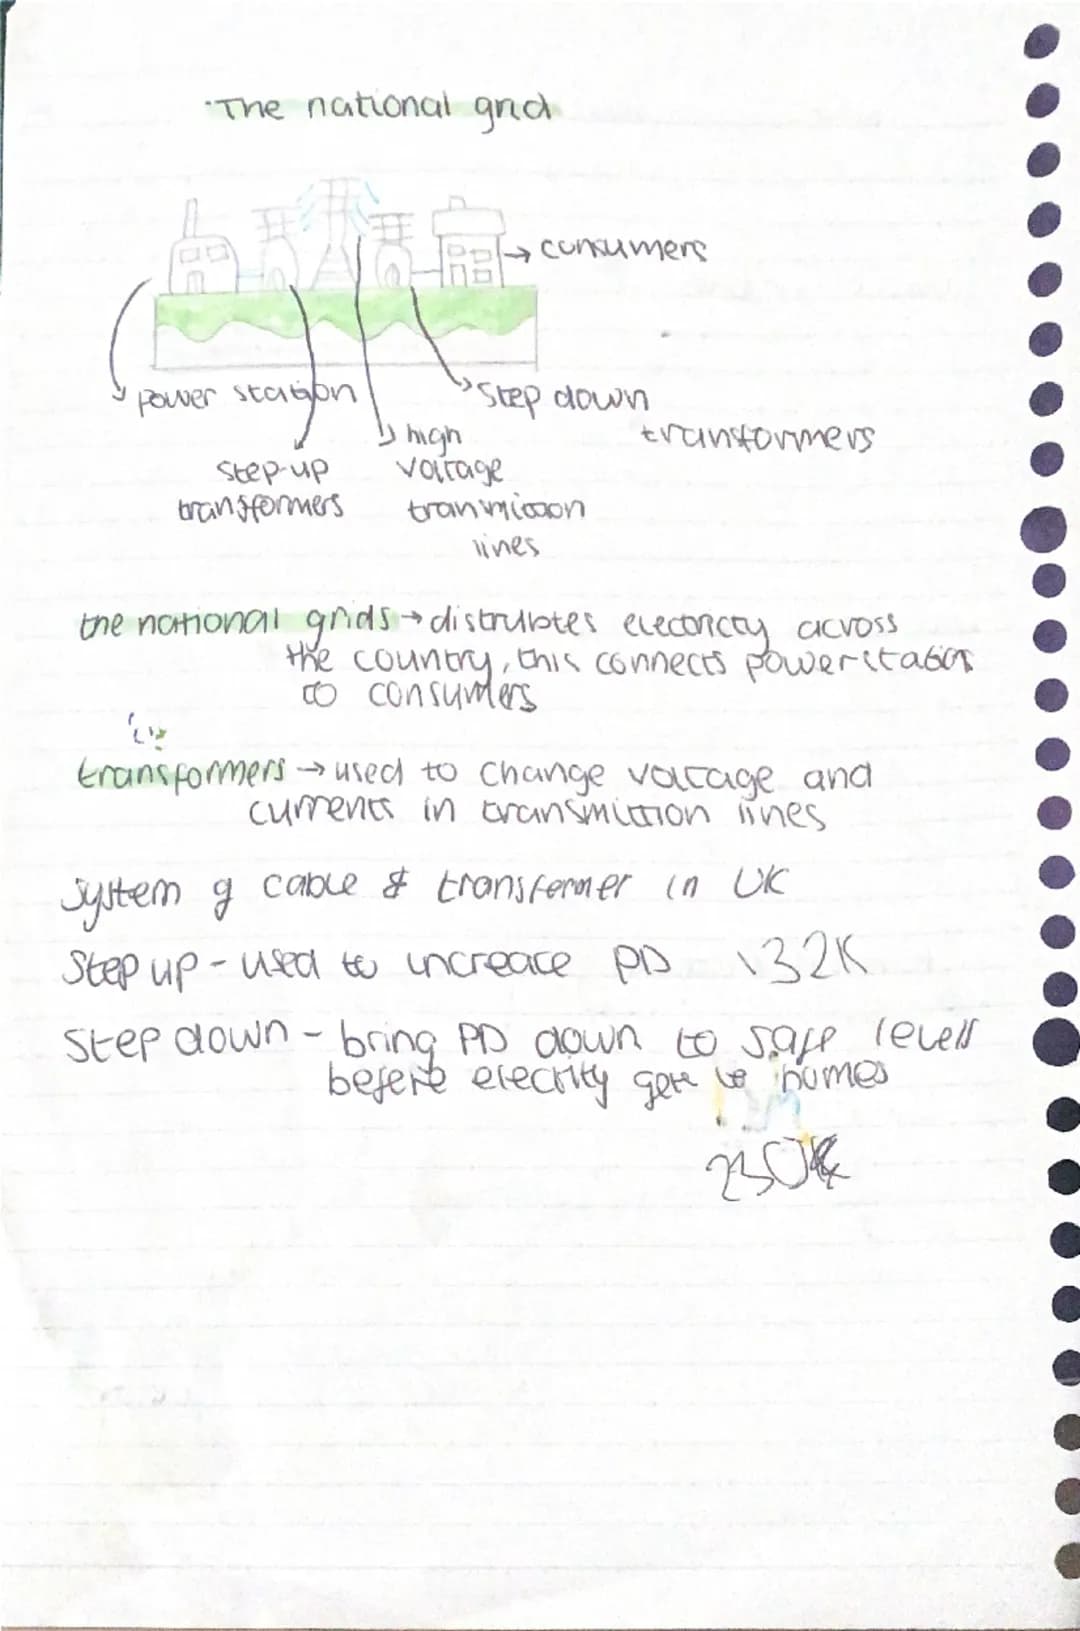 The national grid
→ consumers
power station
step down
transformers
step-up
transformers
high
voltage
tranmission
lines
the national grids → distrubtes electricity across
the country, this connects powerstation
to consumers
transformers → used to change voltage and
currents in transmission lines
system of cable & transformer in UK
Step up - used to increace PD 132K
Step down - bring PD down to safe levels
before electrity gets to homes
230